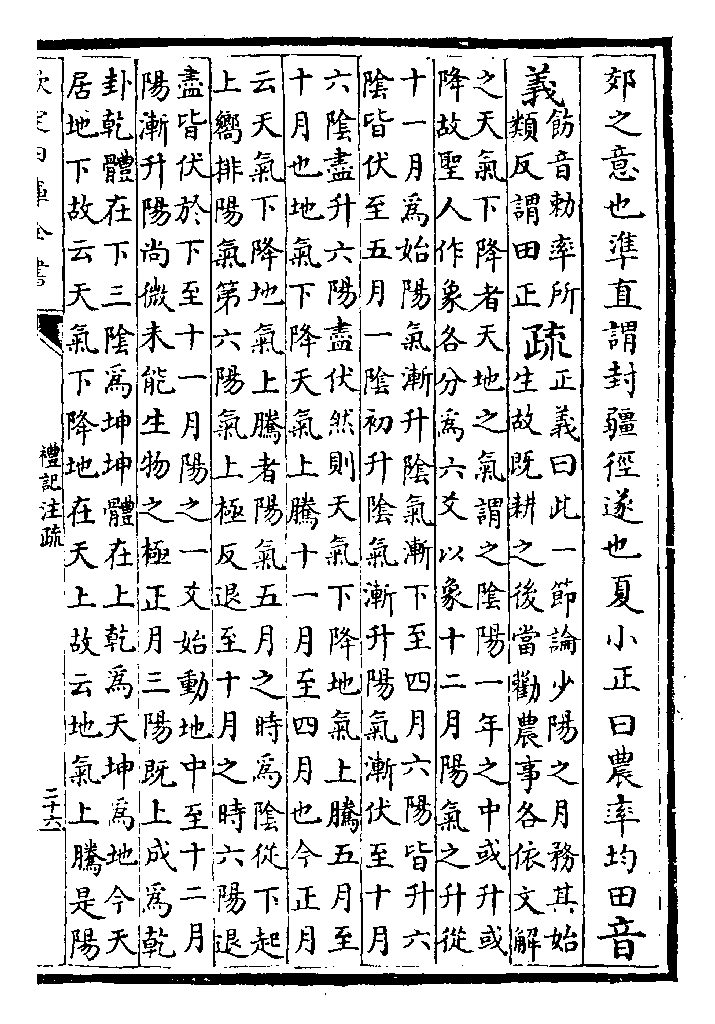 郊之意也準直謂封疆徑遂也夏小正曰農率均田音
義飭音勅率所
類反謂田正疏正義曰此一節論少陽之月務其始
生故既耕之後當勸農事各依文解
之天氣下降者天地之氣謂之陰陽一年之中或升或
降故聖人作象各分為六爻以象十二月陽氣之升從
十一月為始陽氣漸升陰氣漸下至四月六陽皆升六
陰皆伏至五月一陰初升陰氣漸升陽氣漸伏至十月
六陰盡升六陽盡伏然則天氣下降地氣上騰五月至
十月也地氣下降天氣上騰十一月至四月也今正月
云天氣下降地氣上騰者陽氣五月之時為陰從下起
上嚮排陽氣第六陽氣上極反退至十月之時六陽退
盡皆伏於下至十一月陽之一爻始動地中至十二月
陽漸升陽尚微未能生物之極正月三陽既上成為乾
卦乾體在下三陰為坤坤體在上乾為天坤為地今天
居地下故云天氣下降地在天上故云地氣上騰是陽
欽定四庫全書
禮記注疏
二十六